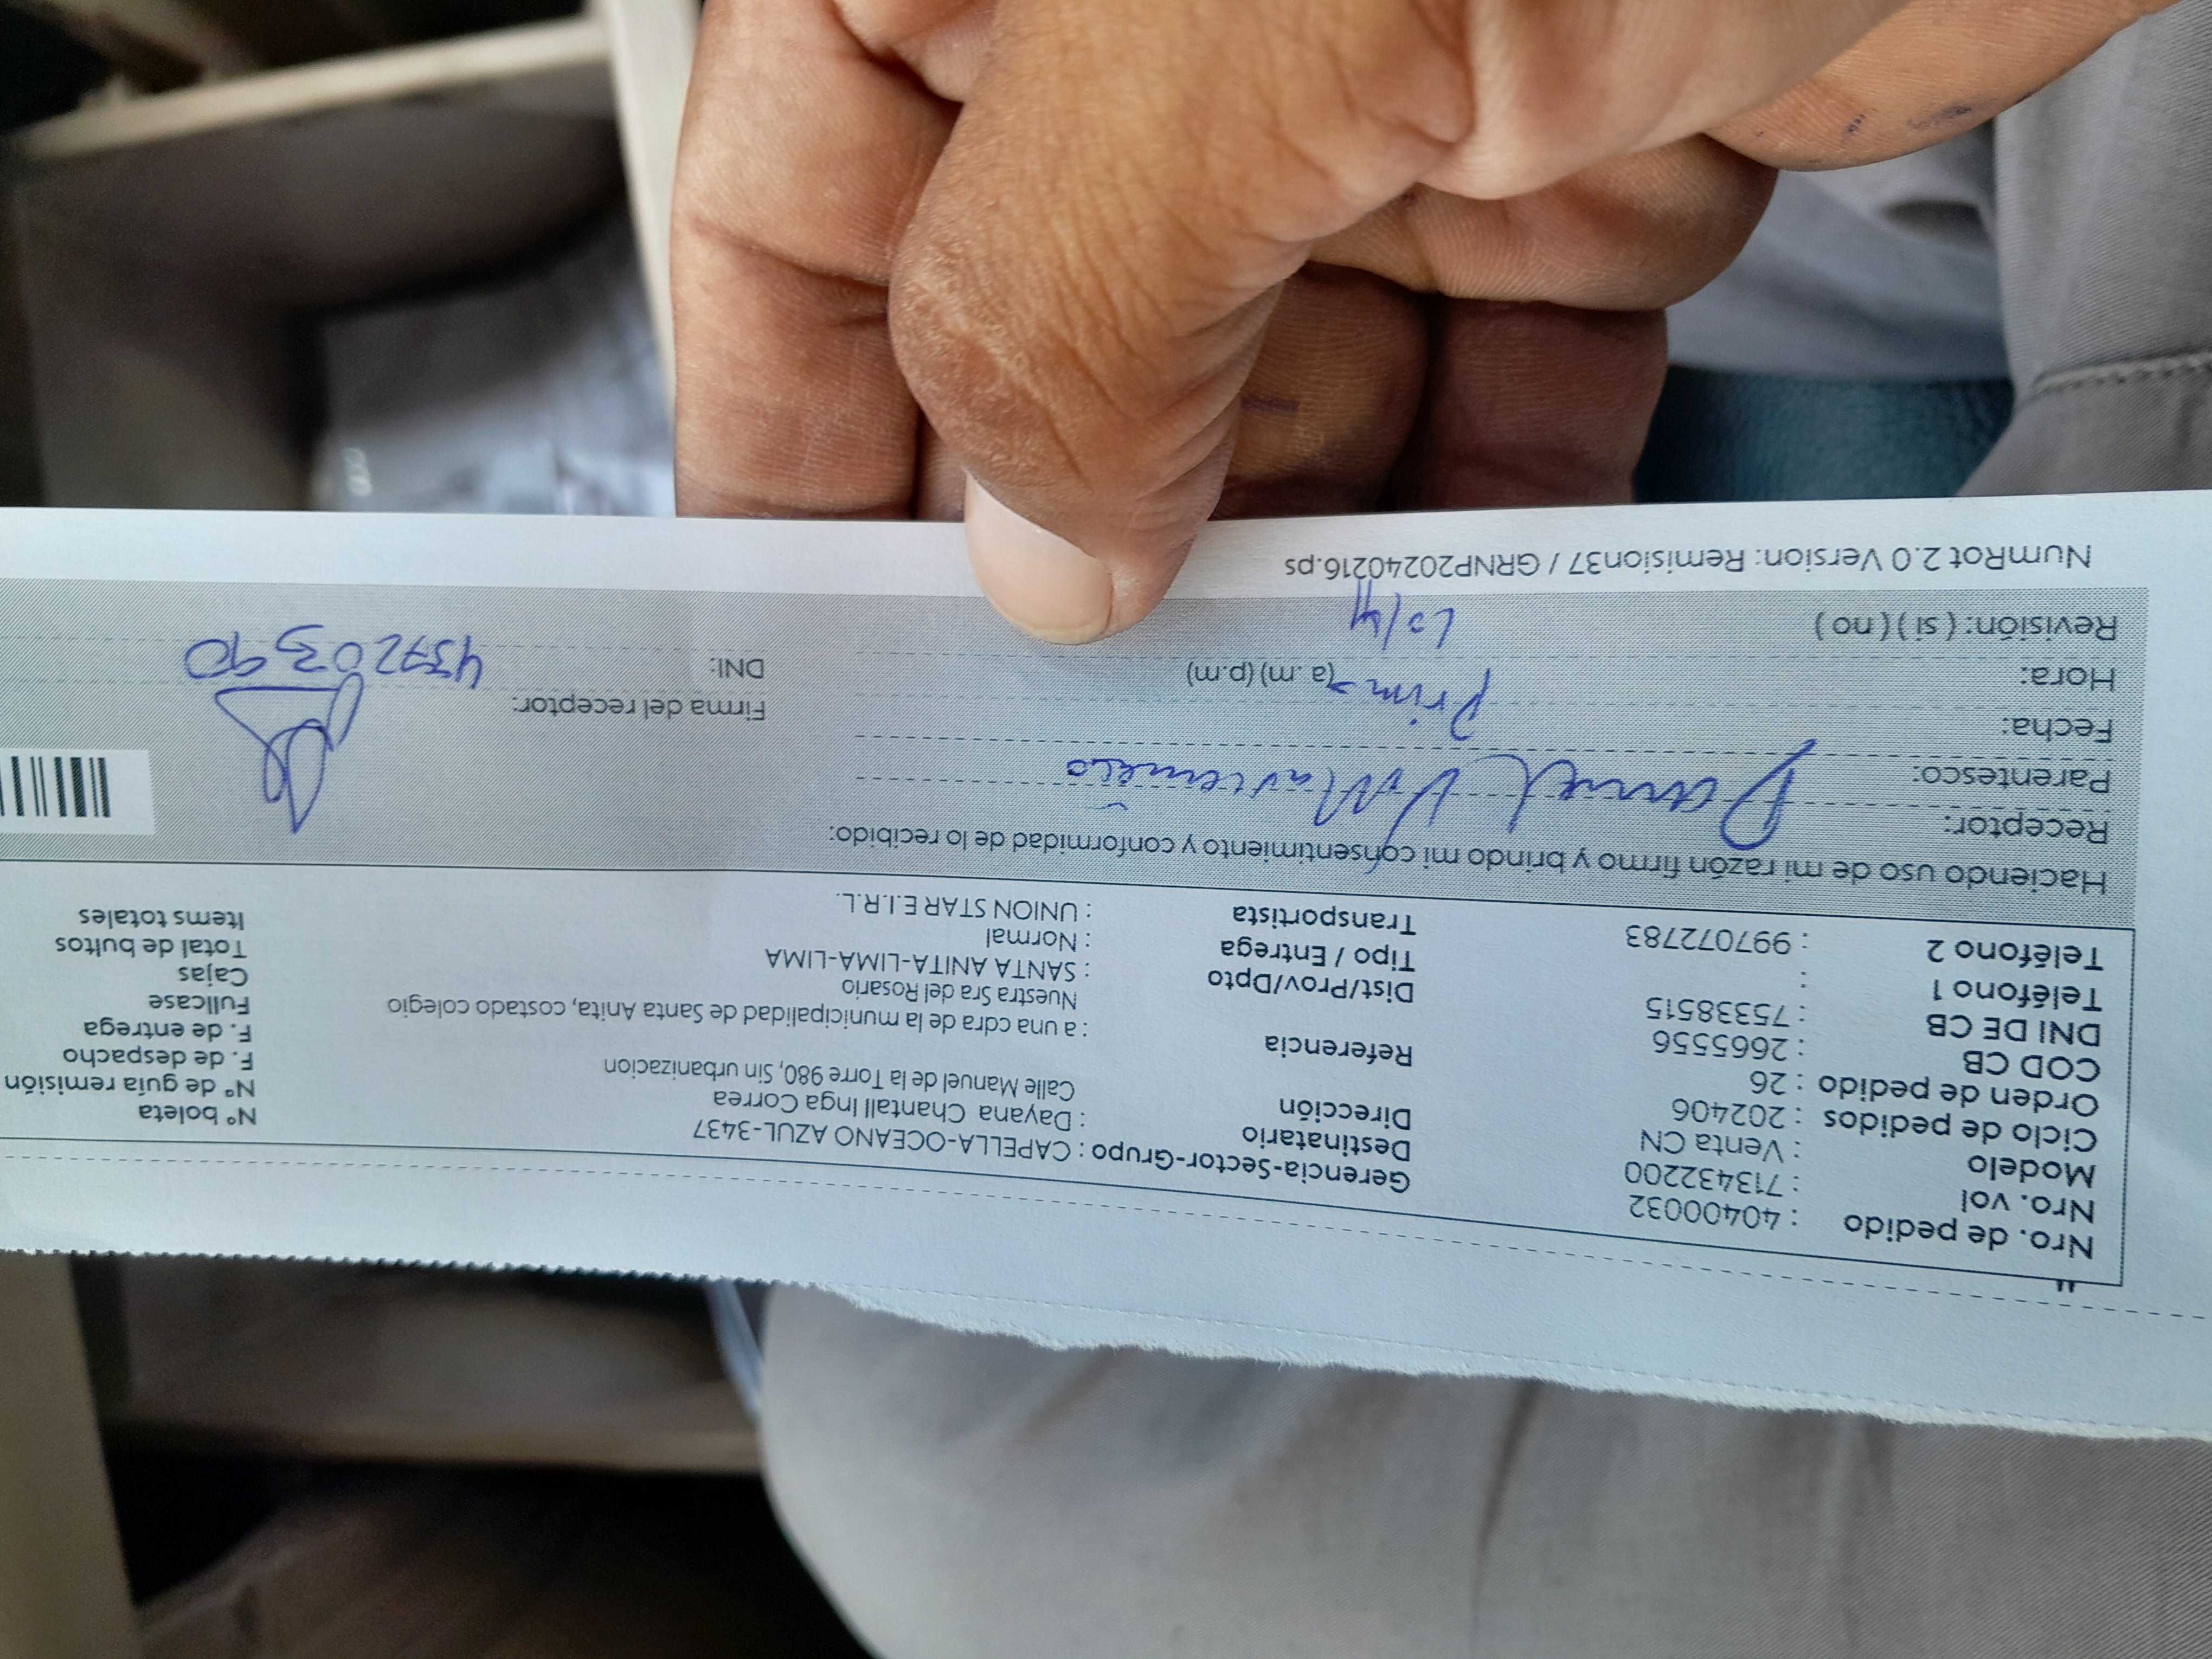 Nro. de pedido : 40400032
Nro. vol : 713432200
Modelo : Venta CN
Ciclo de pedidos : 202406
Orden de pedido : 26
COD CB : 2665556
DNI DE CB : 75338515
Teléfono 1 :
Teléfono 2 : 997072783
Gerencia-Sector-Grupo : CAPELLA-OCEANO AZUL-3437
Destinatario : Dayana Chantall Inga Correa
Dirección Calle Manuel de la Torre 980, Sin urbanizacion
Referencia : a una cdra de la municipalidad de Santa Anita, costado colegio
Nuestra Sra del Rosario
Dist/Prov/Dpto : SANTA ANITA-LIMA-LIMA
Tipo / Entrega : Normal
Transportista : UNION STAR E.I.R.L.
Nº boleta
Nº de guía remisión
F. de despacho
F. de entrega
Fullcase
Cajas
Total de bultos
Items totales
Haciendo uso de mi razón firmo y brindo mi consentimiento y conformidad de lo recibido:
Receptor:
Parentesco:
Fecha: Prim
Hora: (a. m) (p.m)
Revisión: ( si ) ( no )
Firma del receptor:
DNI: 43720390
NumRot 2.0 Version: Remision37 / GRNP20240216.ps